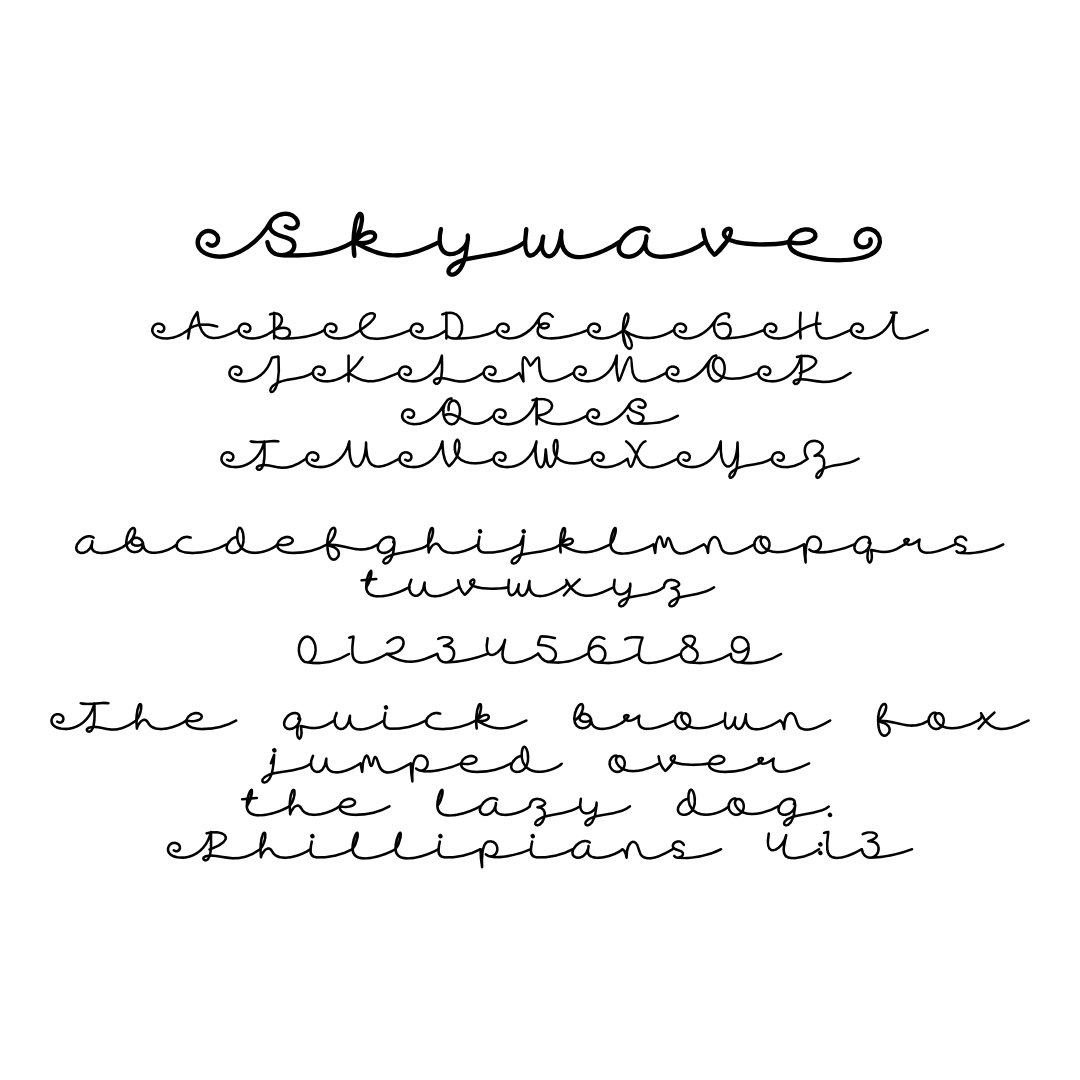 Skywave
ABCDEFGHI
JKLMNOP
QRS
TUVWXYZ
abcdefghijklmnopqrs
tuvwxyz
0123456789
The quick brown fox
jumped over
the lazy dog.
Phillipians 4:13